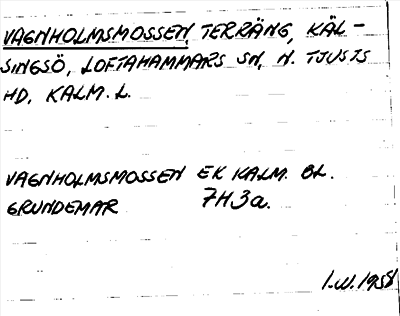 VAGNHOLMSMOSSEN, TERRÄNG, KÄL-
SINGSÖ, LOFTAHAMMARS SN, N. TJUSTS
HD, KALM. L.
VAGNHOLMSMOSSEN EK KALM. BL.
GRUNDEMAR 7H3a.
I.W. 1958